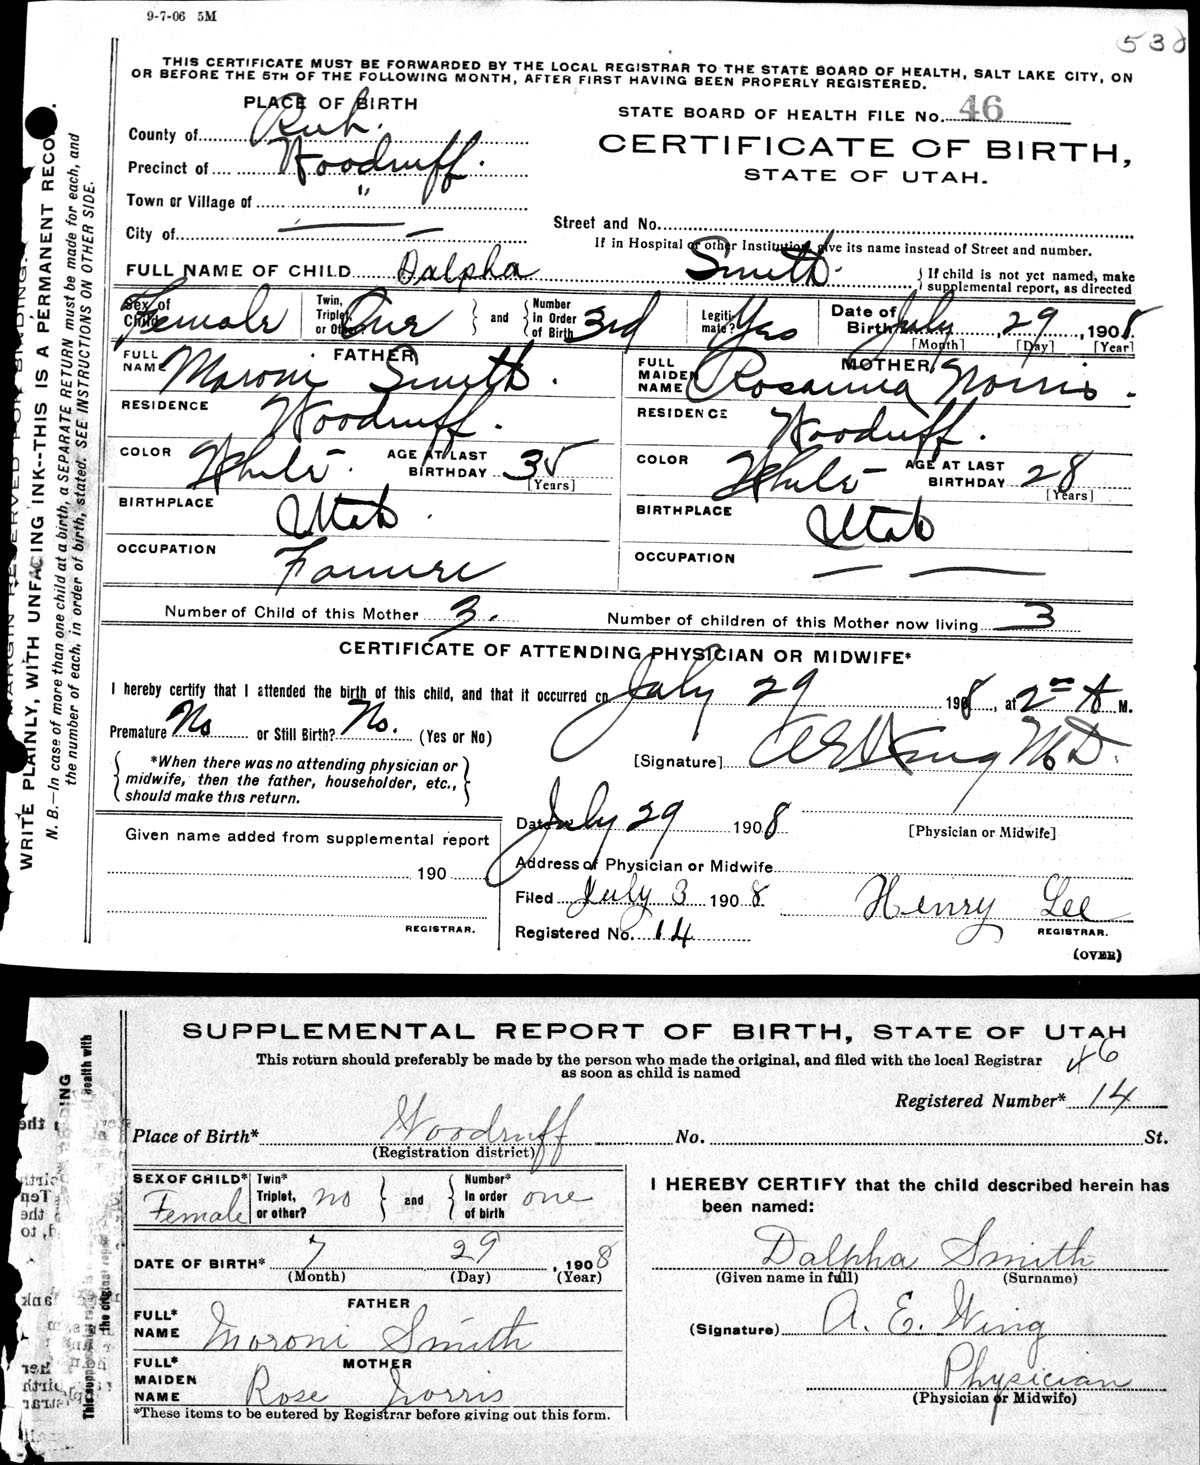 9-7-06 5M
538
THIS CERTIFICATE MUST BE FORWARDED BY THE LOCAL REGISTRAR TO THE STATE BOARD OF HEALTH, SALT LAKE CITY, ON
OR BEFORE THE 5TH OF THE FOLLOWING MONTH, AFTER FIRST HAVING BEEN PROPERLY REGISTERED.
PLACE OF BIRTH
County of Rich.
Precinct of Woodruff.
Town or Village of "
City of
STATE BOARD OF HEALTH FILE No. 46
CERTIFICATE OF BIRTH,
STATE OF UTAH.
Street and No.
If in Hospital or other Institution, give its name instead of Street and number.
FULL NAME OF CHILD Dalpha Smith. } If child is not yet named, make supplemental report, as directed
Sex of Child Female Twin, Triplet, or Other One } and { Number in Order of Birth 3rd Legitimate? Yes Date of Birth July 29, 1908
[Month] [Day] [Year]
FATHER
FULL NAME Maroni Smith.
RESIDENCE Woodruff.
COLOR White. AGE AT LAST BIRTHDAY 35
[Years]
BIRTHPLACE Utah.
OCCUPATION Farmer
MOTHER
FULL MAIDEN NAME Rosanna Norris.
RESIDENCE Woodruff.
COLOR White AGE AT LAST BIRTHDAY 28
[Years]
BIRTHPLACE Utah
OCCUPATION
Number of Child of this Mother 3. Number of children of this Mother now living 3
CERTIFICATE OF ATTENDING PHYSICIAN OR MIDWIFE*
I hereby certify that I attended the birth of this child, and that it occurred on July 29 1908, at 2 A M.
Premature No or Still Birth? No. (Yes or No)
[Signature] A E Wing M.D.
*When there was no attending physician or
midwife, then the father, householder, etc.,
should make this return.
Date July 29 1908
[Physician or Midwife]
Given name added from supplemental report
190
REGISTRAR.
Address of Physician or Midwife
Filed July 3 1908 Henry Lee
REGISTRAR.
Registered No. 14
(OVER)
MARGIN RESERVED FOR BINDING.
WRITE PLAINLY, WITH UNFADING INK--THIS IS A PERMANENT RECO
N. B.—In case of more than one child at a birth, a SEPARATE RETURN must be made for each, and
the number of each, in order of birth, stated. SEE INSTRUCTIONS ON OTHER SIDE.
SUPPLEMENTAL REPORT OF BIRTH, STATE OF UTAH
This return should preferably be made by the person who made the original, and filed with the local Registrar
as soon as child is named
46
Registered Number* 14
Place of Birth* Woodruff No. St.
(Registration district)
SEX OF CHILD* Female Twin* Triplet, or other? no } and { Number* In order of birth one
DATE OF BIRTH* 7 29, 1908
(Month) (Day) (Year)
FATHER
FULL* NAME Moroni Smith
MOTHER
FULL* MAIDEN NAME Rose Norris
*These items to be entered by Registrar before giving out this form.
I HEREBY CERTIFY that the child described herein has
been named:
Dalpha Smith
(Given name in full) (Surname)
(Signature) A. E. Wing
Physician
(Physician or Midwife)